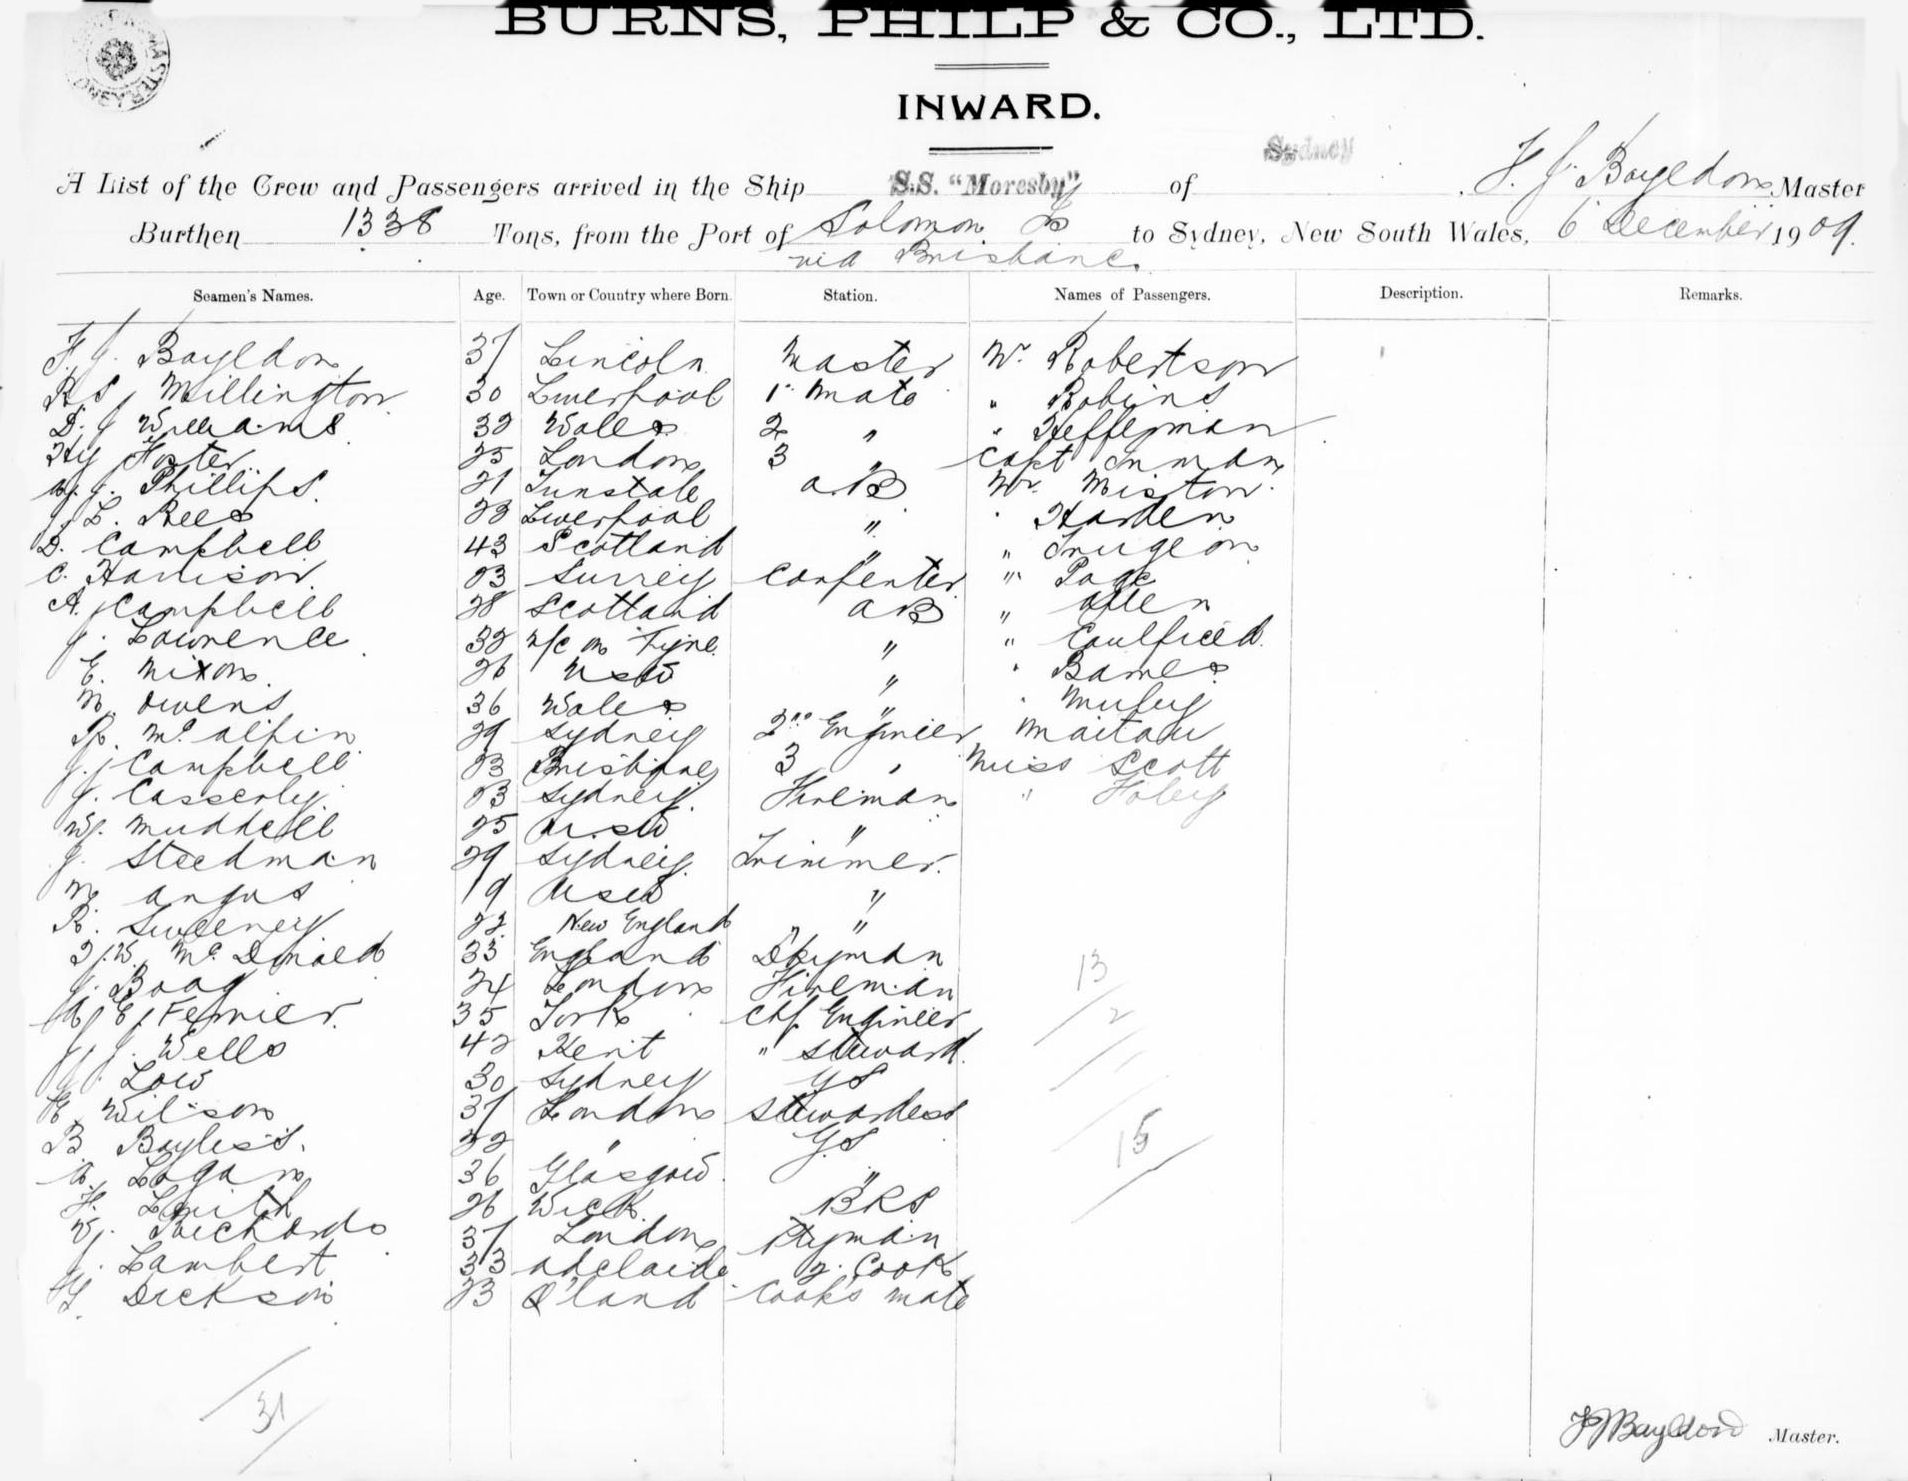 BURNS, PHILP & CO., LTD.
INWARD.
Sydney
A List of the Crew and Passengers arrived in the Ship S.S. "Moresby" of , F. J. Bayldon Master
Burthen 1338 Tons, from the Port of Solomon Is to Sydney, New South Wales, 6 December 1909.
via Brisbane
Seamen's Names. Age. Town or Country where Born. Station. Names of Passengers. Description. Remarks.
F. J. Bayldon 37 Lincoln Master Mr. Robertson
Millington 30 Liverpool 1st Mate " Robins
D. J Williams 32 Wales 2 " " Heffernan
Hy Foster 25 London 3 " Capt Inman
W. J. Phillips. 21 Tunstale A.B Mr. Miston
J. L. Rees 22 Liverpool " " Harden
D. Campbell 43 Scotland " "
C. Harrison 23 Surrey Carpenter " Page
A. Campbell 28 Scotland AB " Allen
J. Lawrence 32 N/C on Tyne " " Caulfield
E. Nixon. 26 NSW " " Barnes
M. Owens 36 Wales "
R. McAlpin 29 Sydney 2nd Engineer
J. Campbell 23 Brisbane 3 " Miss Scott
J. Casserly 23 Sydney. Fireman " Foley
W. Muddell 25 N.SW "
J. Steedman 29 Sydney. Trimmer.
M Angus 19 NSW "
R. Sweeney 22 New England "
McDonald 33 England Dkyman
J. Boag 24 London Fireman
A. E. Ferrier. 35 York Chf Engineer
J. J. Wells 42 Kent " Steward.
J. Low 30 Sydney GS
E Wilson 37 London Stewardess
B Bayless. 22 " GS
A. Logan 36 Glasgow "
F. Smith 26 Wick BRS
W. Richards 37 London Ptyman
J. Lambert 33 Adelaide 2. Cook
Dickson 23 Q'land Cook's mate
13
2
15
31
FJBayldon Master.